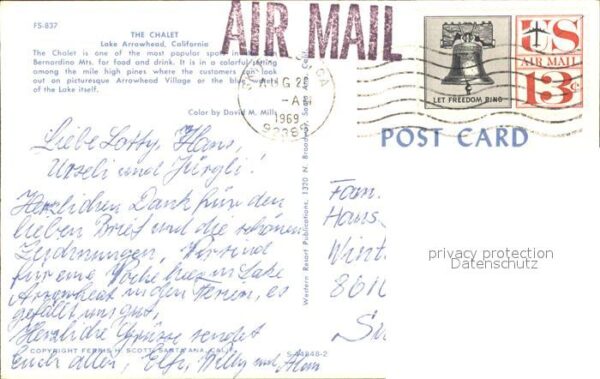 FS-837
THE CHALET
Lake Arrowhead, California
The Chalet is one of the most popular spots in
Bernardino Mts. for food and drink. It is in a colorful setting
among the mile high pines where the customers can look
out on picturesque Arrowhead Village or the blue waters
of the Lake itself.
Color by David M. Mills
AIR MAIL
CA
AUG 22
AM
1969
LET FREEDOM RING
US
AIR MAIL
13c
POST CARD
Liebe Lotty, Hans,
Urseli und Jürgli!
Herzlichen Dank für den
lieben Brief und die schönen
Zeichnungen, Wir sind
für eine Woche hier in Lake
Arrowheat in den Ferien, es
gefällt uns gut.
Herzliche Grüsse sendet
Euch allen, Elfi, Willy und
Western Resort Publications, 1320 N. Broadway, Santa Ana, Calif.
Fam.
Hans
Wint
privacy protection
Datenschutz
COPYRIGHT FERRIS H. SCOTT, SANTA ANA, CALIF.
S-44848-2